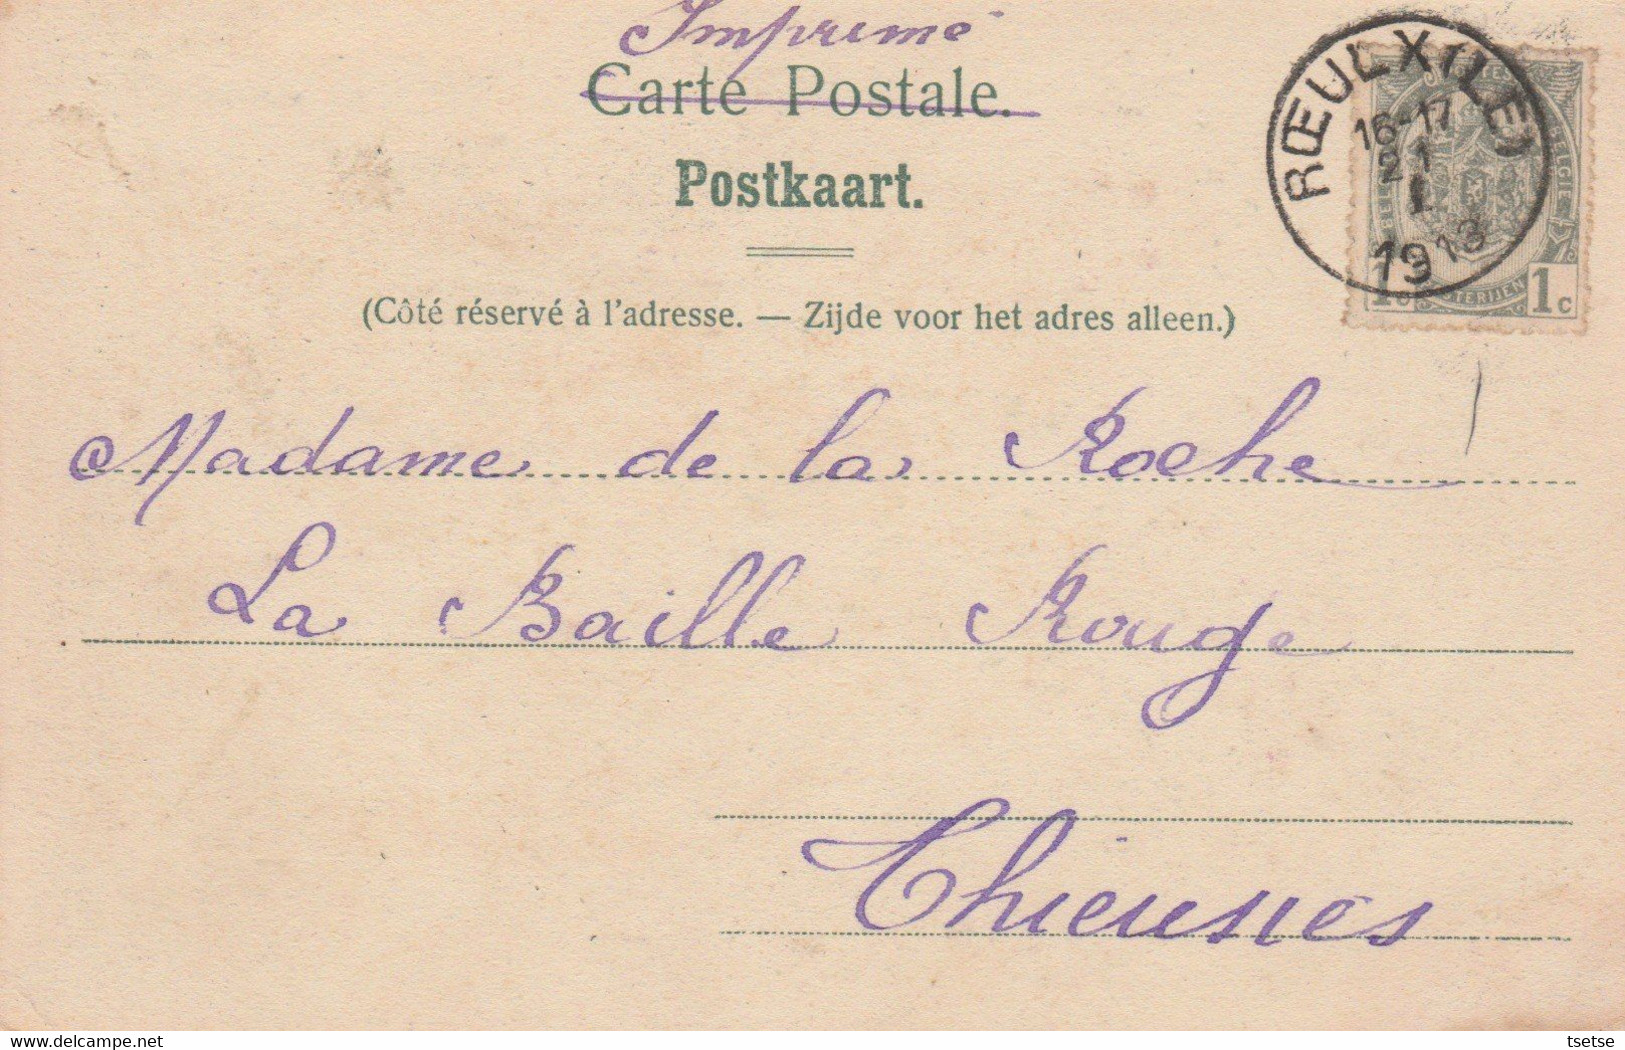 Imprimé
Carte Postale.
Postkaart.
RŒULX (LE)
16-17
21
1
1913
1c
1c
(Côté réservé à l'adresse. — Zijde voor het adres alleen.)
Madame de la Roche
La Baille Rouge
Thieusies
Delcampe.net
tsetse